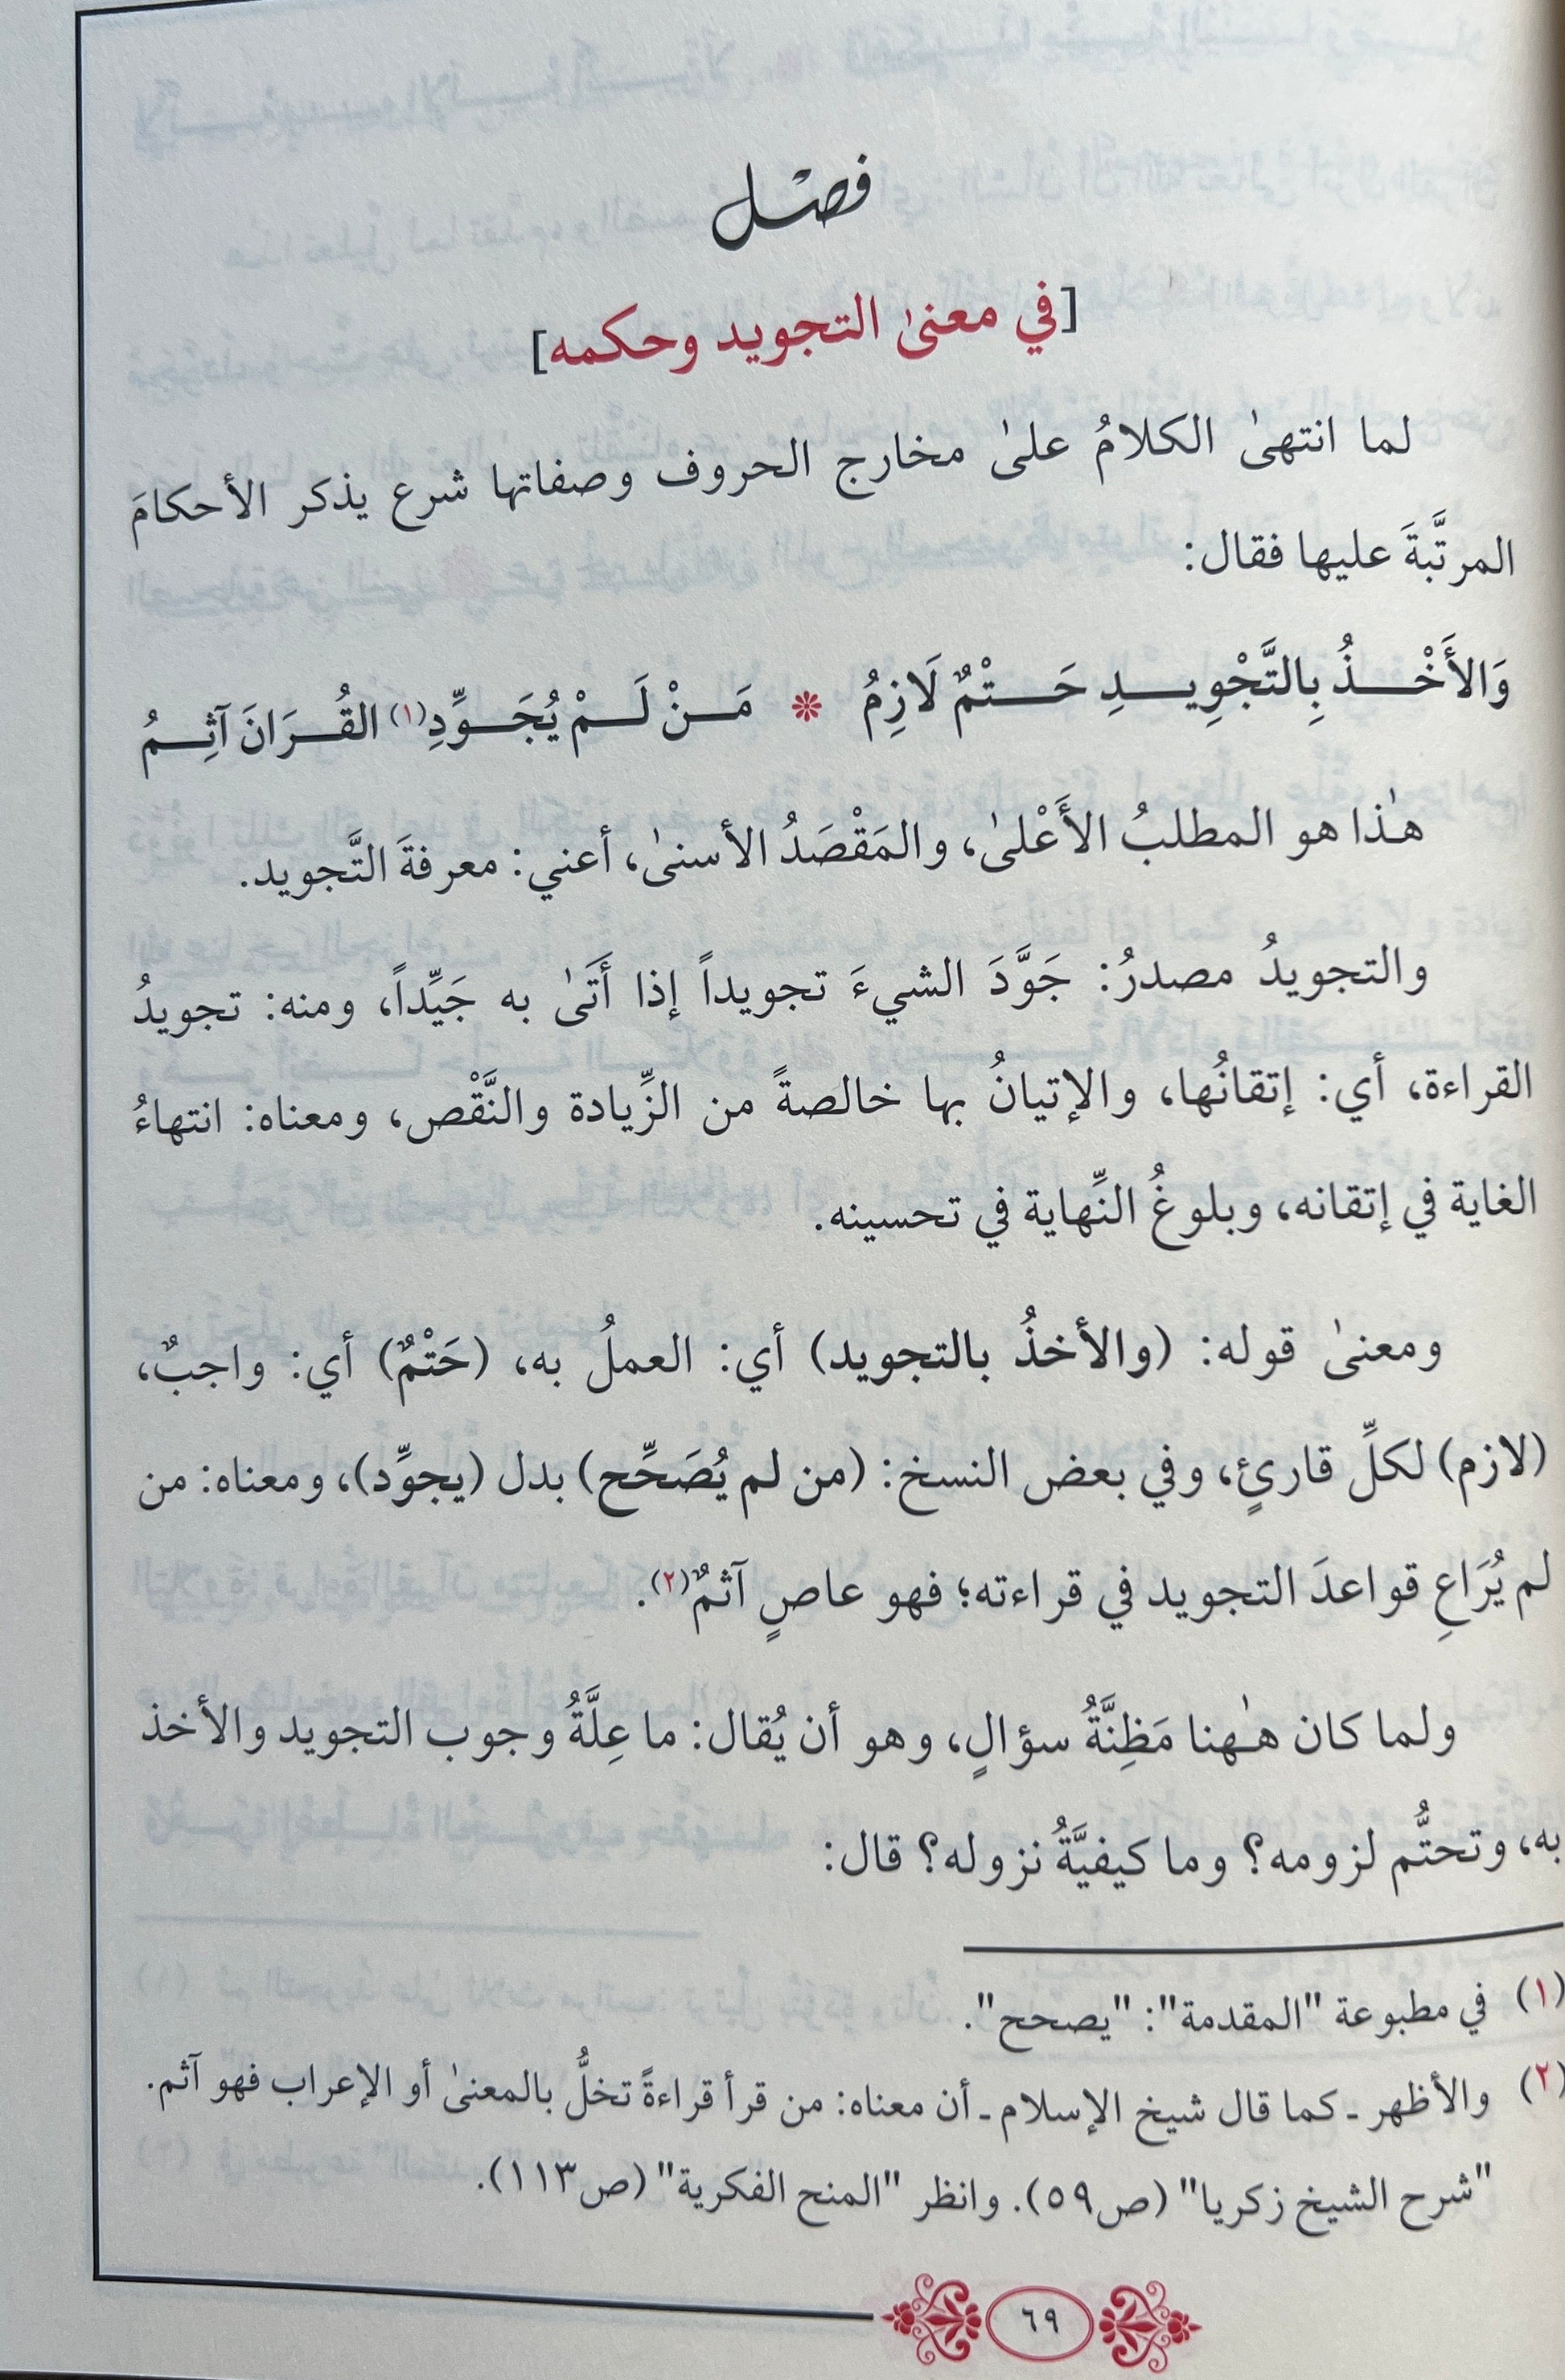 فصل
[في معنىٰ التجويد وحكمه]
لما انتهىٰ الكلامُ علىٰ مخارج الحروف وصفاتها شرع يذكر الأحكامَ
المرتَّبةَ عليها فقال:
وَالأَخْـــذُ بِالتَّجْوِيـــدِ حَـــتْمٌ لَازِمُ * مَـــنْ لَـــمْ يُجَـــوِّدِ(١) القُـــرَانَ آثِـــمُ
هـٰذا هو المطلبُ الأَعْلىٰ، والمَقْصَدُ الأسنىٰ، أعني: معرفةَ التَّجويد.
والتجويدُ مصدرُ: جَوَّدَ الشيءَ تجويداً إذا أَتَىٰ به جَيِّداً، ومنه: تجويدُ
القراءة، أي: إتقانُها، والإتيانُ بها خالصةً من الزِّيادة والنَّقْص، ومعناه: انتهاءُ
الغاية في إتقانه، وبلوغُ النِّهاية في تحسينه.
ومعنىٰ قوله: (والأخذُ بالتجويد) أي: العملُ به، (حَتْمٌ) أي: واجبٌ،
(لازم) لكلِّ قارئٍ، وفي بعض النسخ: (من لم يُصَحِّح) بدل (يجوِّد)، ومعناه: من
لم يُرَاعِ قواعدَ التجويد في قراءته؛ فهو عاصٍ آثمٌ(٢).
ولما كان هـٰهنا مَظِنَّةُ سؤالٍ، وهو أن يُقال: ما عِلَّةُ وجوب التجويد والأخذ
به، وتحتُّم لزومه؟ وما كيفيَّةُ نزوله؟ قال:
(١) في مطبوعة "المقدمة": "يصحح".
(٢) والأظهر ـ كما قال شيخ الإسلام ـ أن معناه: من قرأ قراءةً تخلُّ بالمعنىٰ أو الإعراب فهو آثم.
"شرح الشيخ زكريا" (ص٥٩). وانظر "المنح الفكرية" (ص١١٣).
٦٩